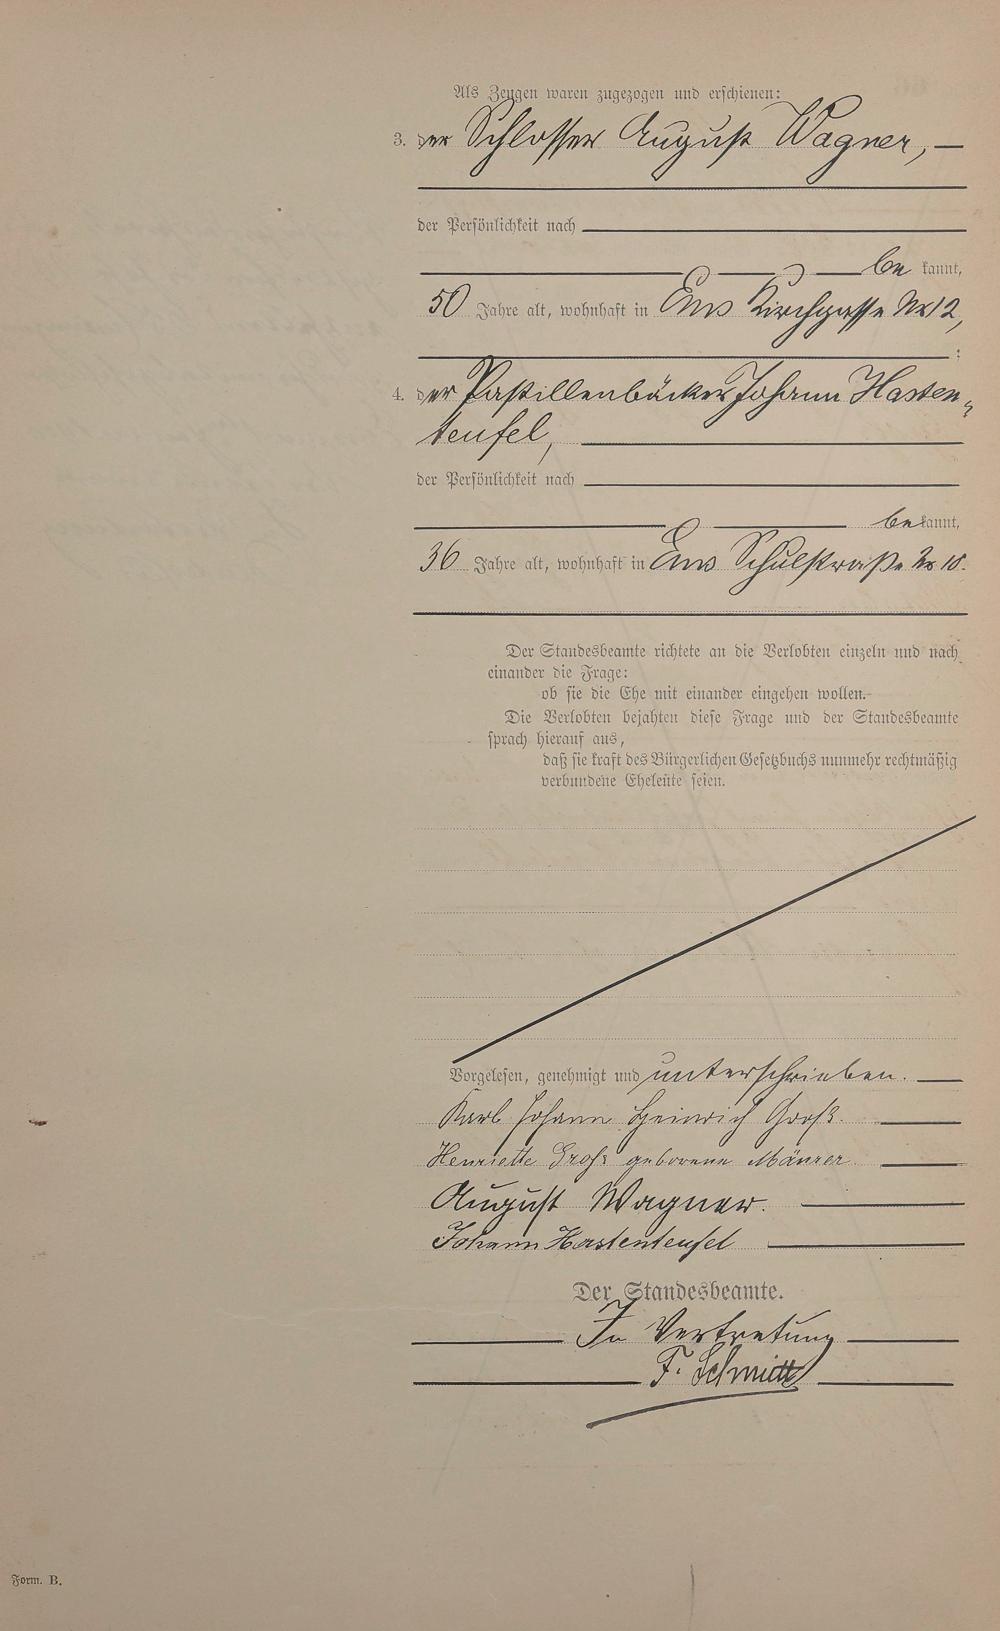 Als Zeugen waren zugezogen und erschienen:
3. der Schlosser August Wagner,
der Persönlichkeit nach
bekannt,
50 Jahre alt, wohnhaft in Ems Kirchgasse Nr 12,
;
4. der Pastillenbäcker Johann Hasten-
teufel,
der Persönlichkeit nach
bekannt,
36 Jahre alt, wohnhaft in Ems Schulstraße Nr 18.
Der Standesbeamte richtete an die Verlobten einzeln und nach
einander die Frage:
ob sie die Ehe mit einander eingehen wollen.
Die Verlobten bejahten diese Frage und der Standesbeamte
sprach hierauf aus,
daß sie kraft des Bürgerlichen Gesetzbuchs nunmehr rechtmäßig
verbundene Eheleute seien.
Vorgelesen, genehmigt und unterschrieben.
Karl Johann Heinrich Groß.
Henriette Groß geborene Mäurer
August Wagner.
Johann Hastenteufel
Der Standesbeamte.
In Vertretung
F. Schmitt
Form. B.